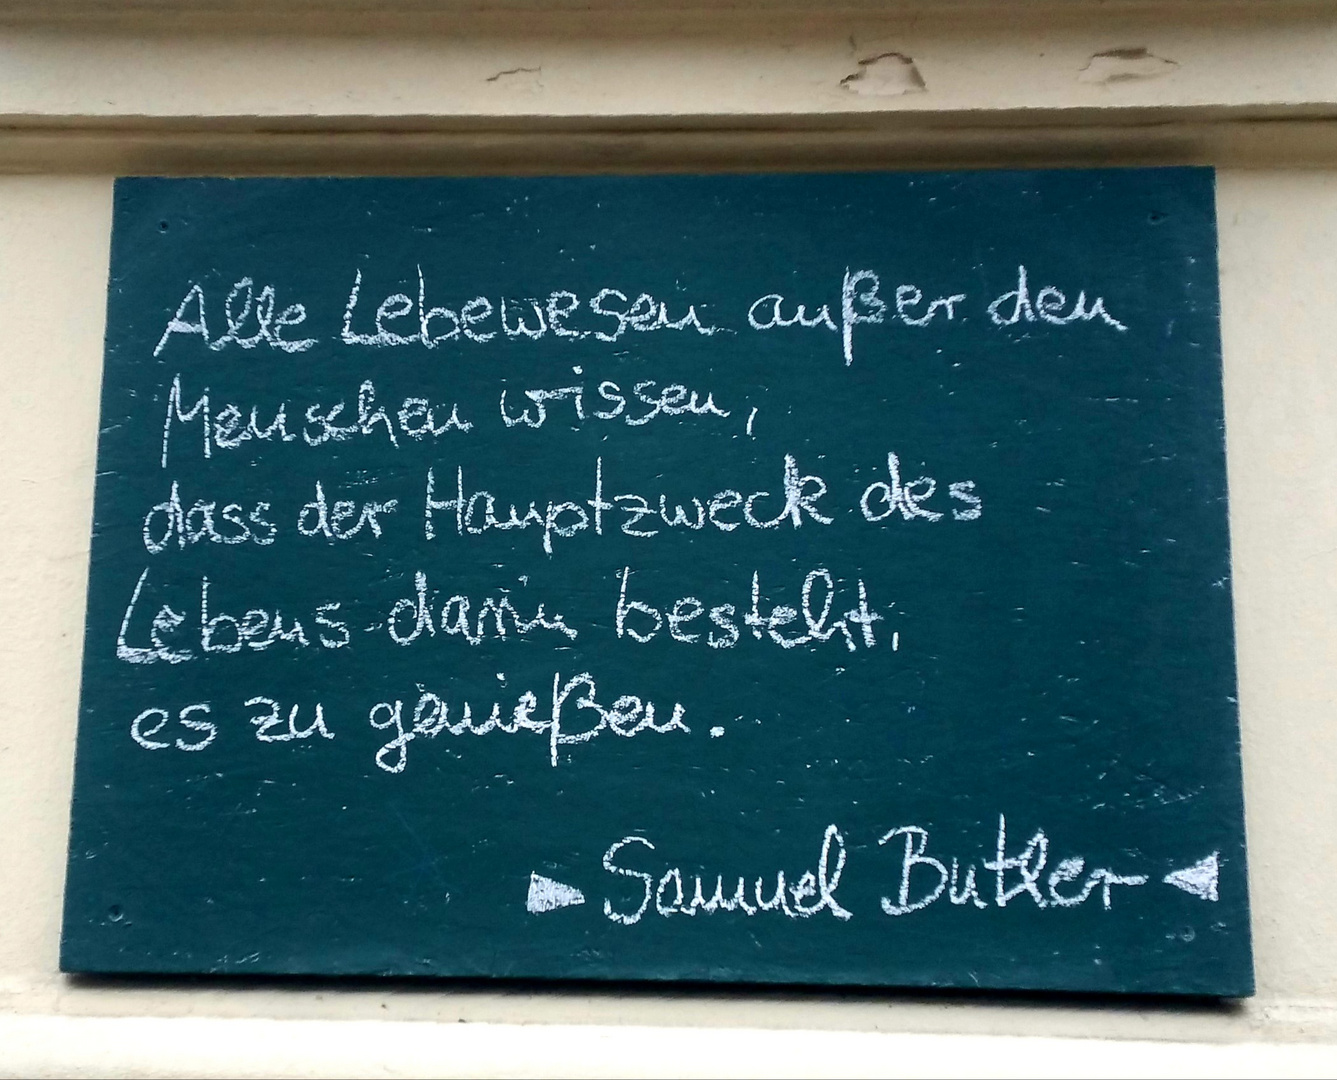 Alle Lebewesen außer den
Menschen wissen,
dass der Hauptzweck des
Lebens darin besteht,
es zu genießen.
Samuel Butler